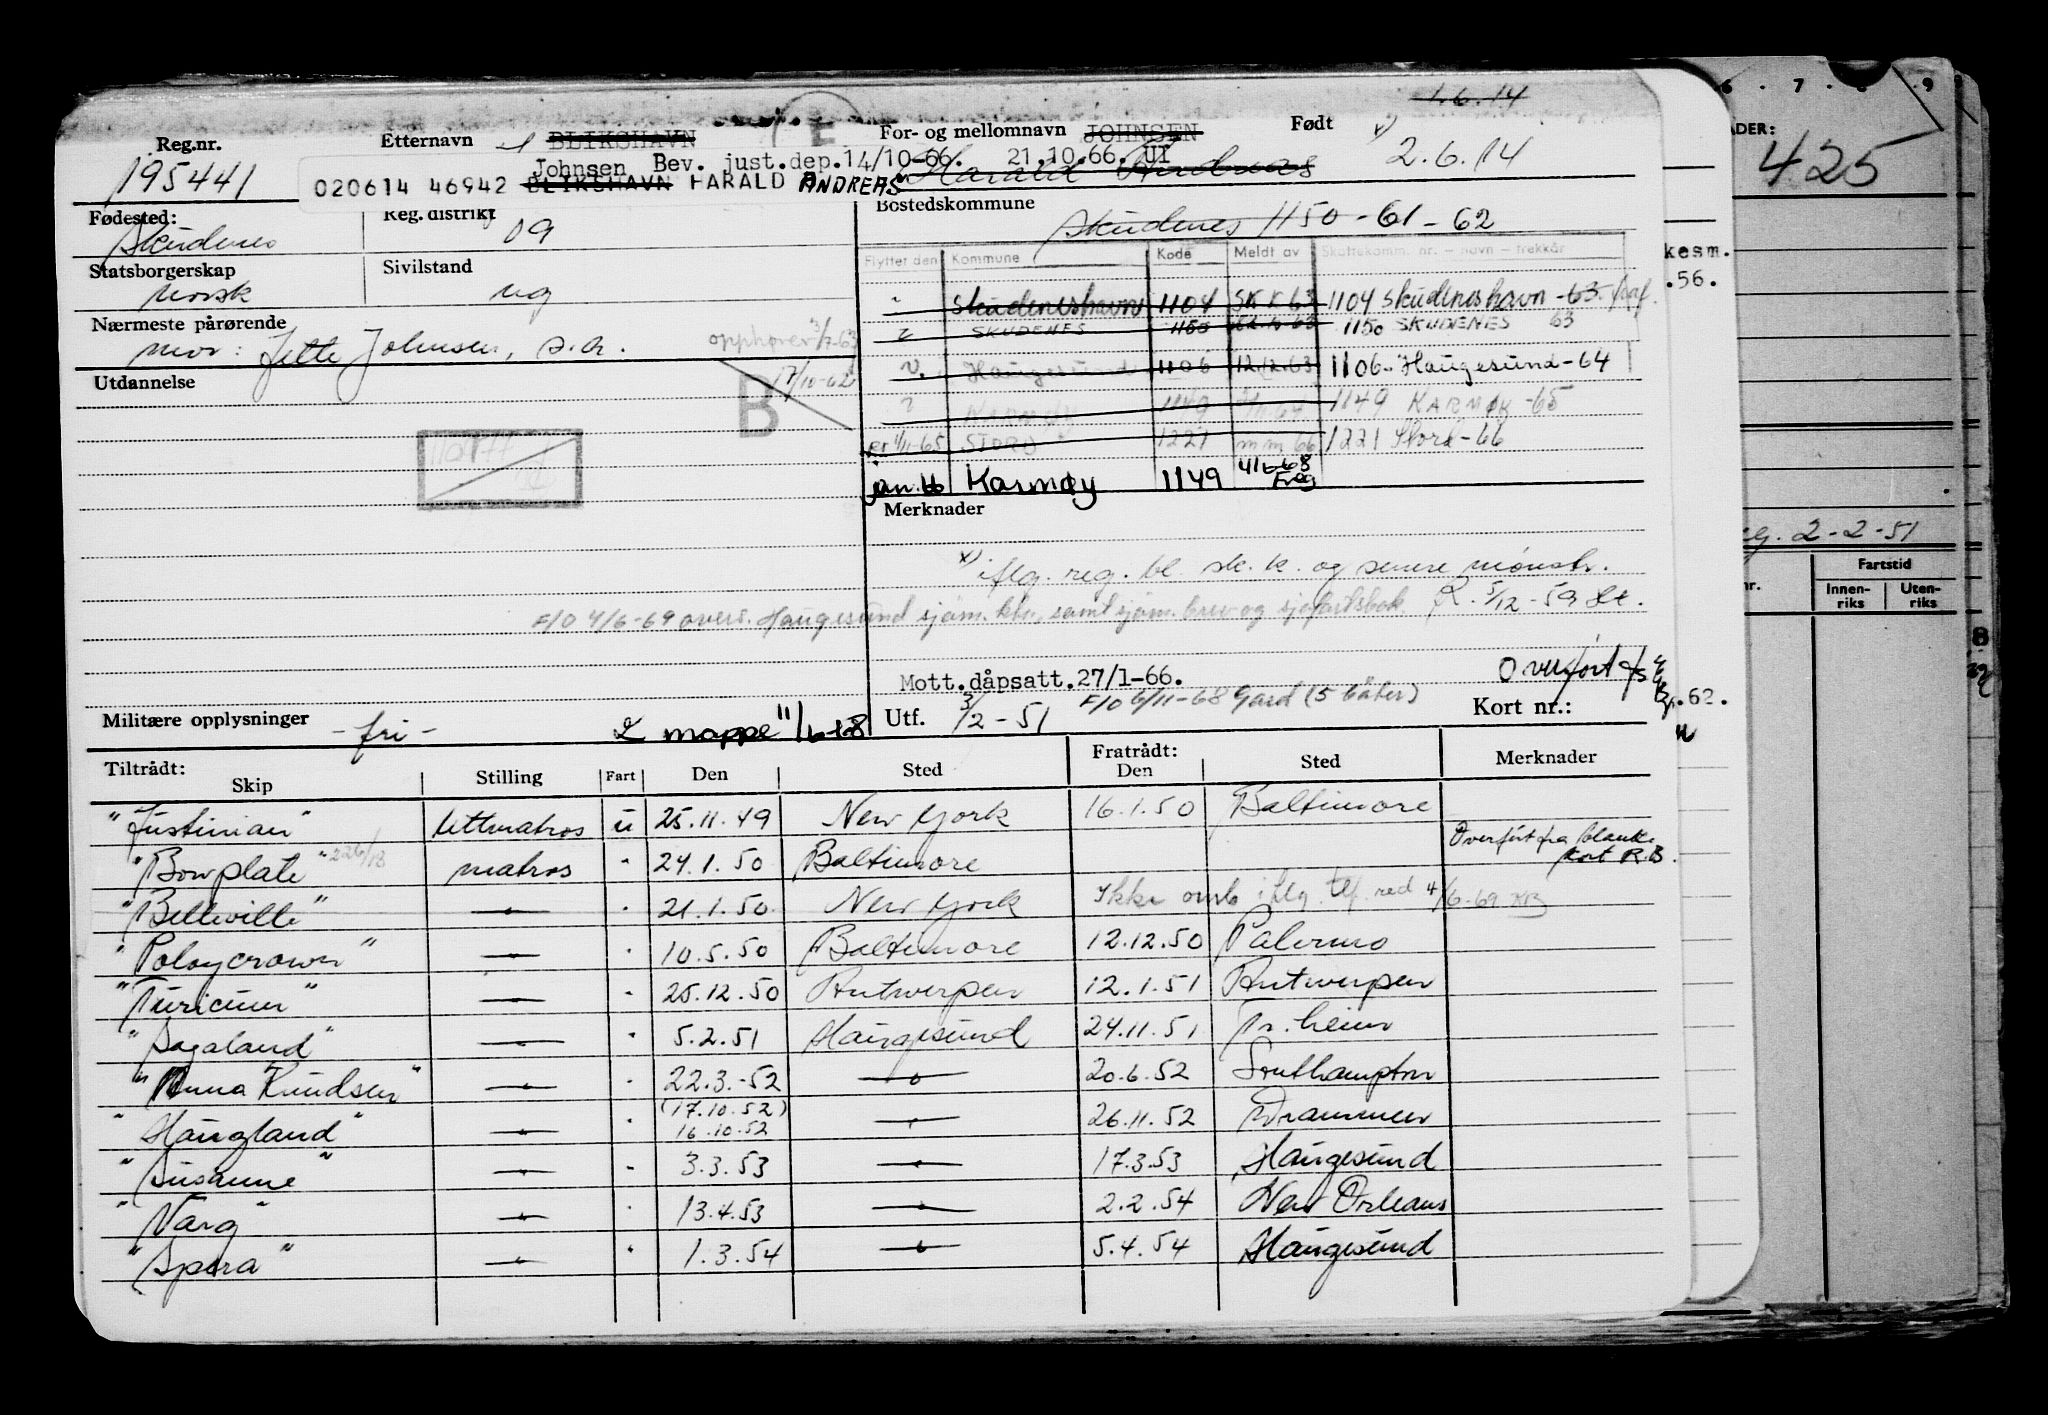 1.6.14
Reg.nr. Etternavn BLIKSHAVN E For- og mellomnavn JOHNSEN Født
Johnsen Bev. just.dep.14/10-66. 21.10.66. UI
195441 020614 46942 BLIKSHAVN HARALD ANDREAS Harald Andreas x) 2.6.14
Fødested: Reg. distrikt Bostedskommune
Skudenes 09 Skudenes 1150-61-62
Statsborgerskap Sivilstand
norsk ug
Flyttet den Kommune Kode Meldt av Skattekomm. nr. - navn - trekkår
Skudeneshavn 1104 SK K 63 1104 Skudeneshavn -63
SKUDENES 1150 1150 SKUDENES 63
Haugesund 1106 12.12.63 1106-Haugesund-64
KARMØY 1149 1149 KARMØY -65
1/11-65 STORD 1221 mm 66 1221 Stord-66
jan. Karmøy 1149
Nærmeste pårørende
mor: Jette Johnsen, s.a. opphører
Utdannelse
B 7/10-62
Merknader
x) iflg. reg. bl. sk. k. og senere mønstr.
R. 5/12-59
F/O 4/6-69 overs. Haugesund sjøm. ktr., samt sjøm. brev og sjøfartsbok.
Mott.dåpsatt.27/1-66.
F/O 6/11-68 Gard (5 båter)
Overført
Militære opplysninger -fri- 2 mappe Utf. 3/2-51 Kort nr.:
Tiltrådt: Fratrådt:
Skip Stilling Fart Den Sted Den Sted Merknader
"Justinian" lettmatros u 25.11.49 New York 16.1.50 Baltimore
"Bowplate" matros " 24.1.50 Baltimore Overført fra blank kort R.B.
"Belleville" — " 21.1.50 New York Ikke omb iflg. tlf. red 4/6-69
"Polaycrown" — " 10.5.50 Baltimore 12.12.50 Palermo
"Turicum" — " 25.12.50 Antwerpen 12.1.51 Antwerpen
"Sagaland" — " 5.2.51 Haugesund 24.11.51 Tr.heim
"Anna Knudsen" — " 22.3.-52 — 20.6.52 Southampton
"Haugland" — " (17.10.52) 16.10.52 — 26.11.52 Drammen
"Susanne" — " 3.3.53 — 17.3.53 Haugesund
"Varg" — " 13.4.53 — 2.2.54 New Orleans
"Spera" — " 1.3.54 — 5.4.54 Haugesund
6 . 7 . 8 . 9
ADER:
425
kesm.
.56.
2-2-51
Fartstid
nr. Innen-riks Uten-riks
.62.